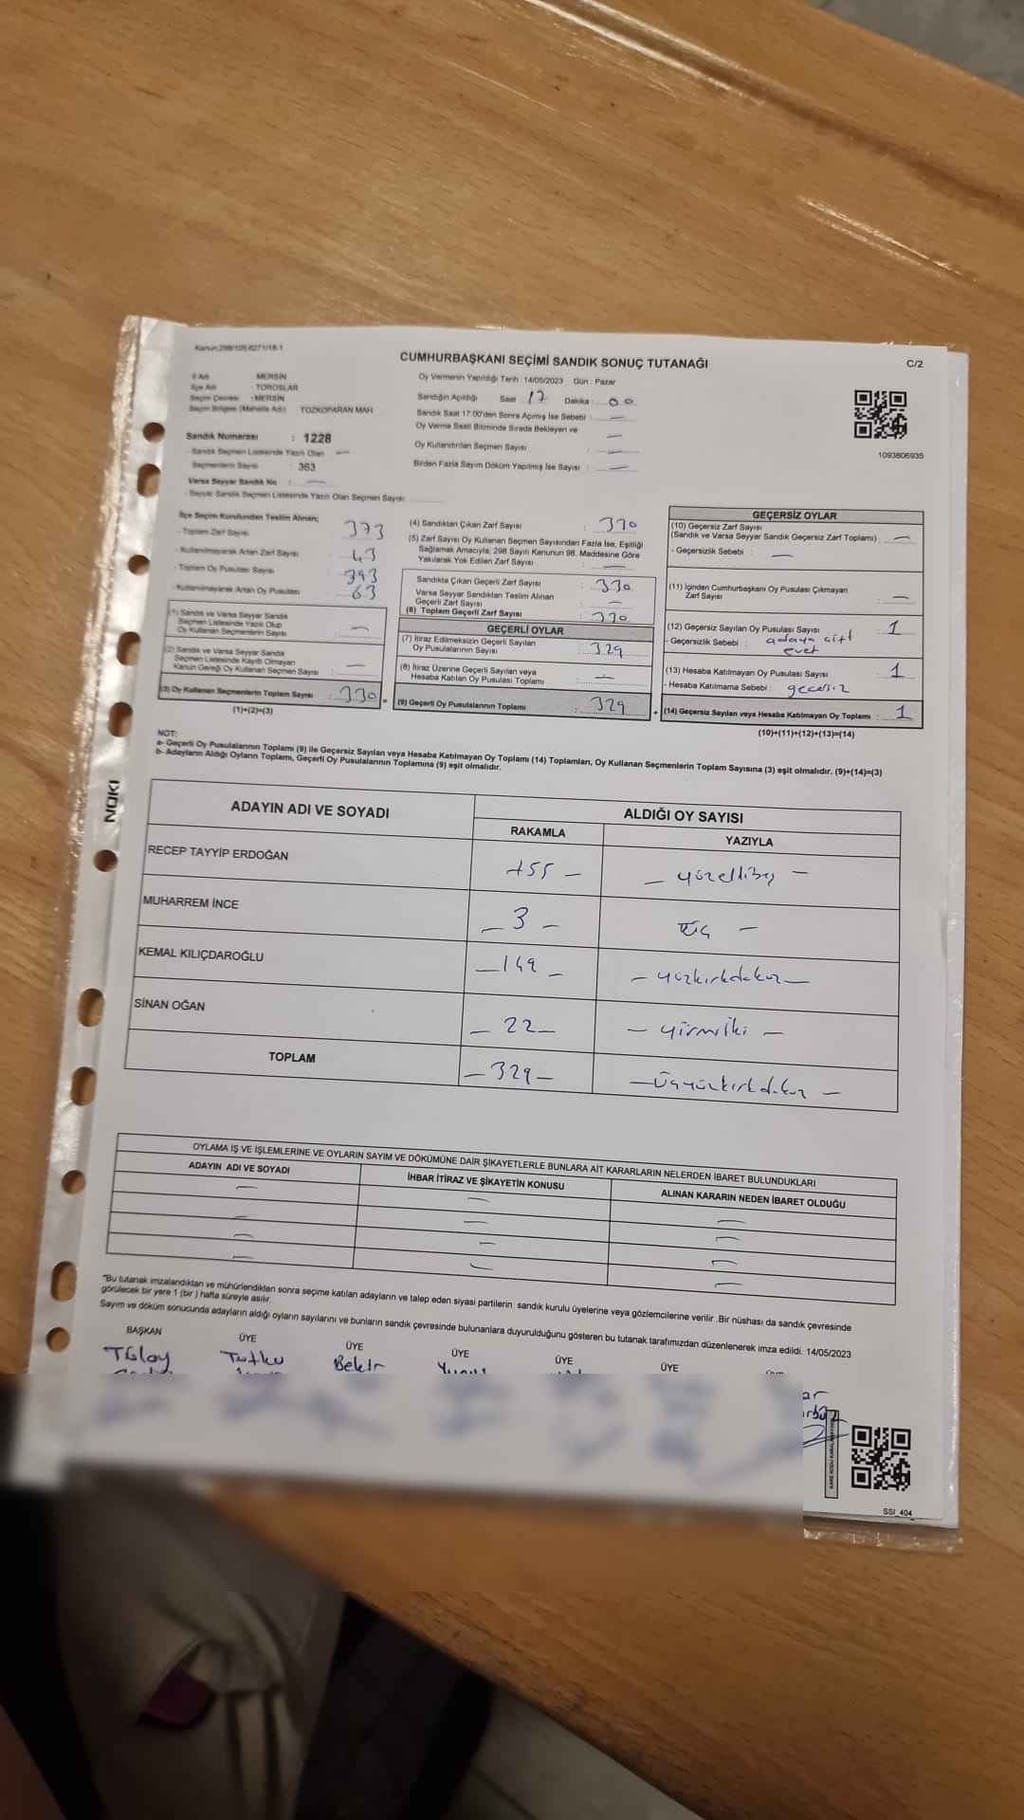 Kanun:298/105-6271/18-1
CUMHURBAŞKANI SEÇİMİ SANDIK SONUÇ TUTANAĞI
C/2
İl Adı : MERSİN
İlçe Adı : TOROSLAR
Seçim Çevresi : MERSİN
Seçim Bölgesi (Mahalle Adı) : TOZKOPARAN MAH
Oy Vermenin Yapıldığı Tarih :14/05/2023 Gün : Pazar
Sandığın Açıldığı Saat : 17 Dakika : 00
Sandık Saat 17:00'den Sonra Açılmış İse Sebebi : —
Oy Verme Saati Bitiminde Sırada Bekleyen ve
Oy Kullandırılan Seçmen Sayısı : —
Birden Fazla Sayım Döküm Yapılmış İse Sayısı : —
1093806935
Sandık Numarası : 1228
- Sandık Seçmen Listesinde Yazılı Olan
Seçmenlerin Sayısı : 363
Varsa Seyyar Sandık No : —
- Seyyar Sandık Seçmen Listesinde Yazılı Olan Seçmen Sayısı:
İlçe Seçim Kurulundan Teslim Alınan;
- Toplam Zarf Sayısı : 373
- Kullanılmayarak Artan Zarf Sayısı : 43
- Toplam Oy Pusulası Sayısı : 393
- Kullanılmayarak Artan Oy Pusulası : 63
(1) Sandık ve Varsa Seyyar Sandık
Seçmen Listesinde Yazılı Olup
Oy Kullanan Seçmenlerin Sayısı : —
(2) Sandık ve Varsa Seyyar Sandık
Seçmen Listesinde Kayıtlı Olmayan
Kanun Gereği Oy Kullanan Seçmen Sayısı : —
(3) Oy Kullanan Seçmenlerin Toplam Sayısı : 330 =
(1)+(2)=(3)
(4) Sandıktan Çıkan Zarf Sayısı : 330
(5) Zarf Sayısı Oy Kullanan Seçmen Sayısından Fazla İse, Eşitliği
Sağlamak Amacıyla, 298 Sayılı Kanunun 98. Maddesine Göre
Yakılarak Yok Edilen Zarf Sayısı : —
Sandıkta Çıkan Geçerli Zarf Sayısı : 330
Varsa Seyyar Sandıktan Teslim Alınan
Geçerli Zarf Sayısı : —
(6) Toplam Geçerli Zarf Sayısı : 330
GEÇERLİ OYLAR
(7) İtiraz Edilmeksizin Geçerli Sayılan
Oy Pusulalarının Sayısı : 329
(8) İtiraz Üzerine Geçerli Sayılan veya
Hesaba Katılan Oy Pusulası Toplamı : —
(9) Geçerli Oy Pusulalarının Toplamı : 329 +
GEÇERSİZ OYLAR
(10) Geçersiz Zarf Sayısı
(Sandık ve Varsa Seyyar Sandık Geçersiz Zarf Toplamı) : —
- Geçersizlik Sebebi : —
(11) İçinden Cumhurbaşkanı Oy Pusulası Çıkmayan
Zarf Sayısı : —
(12) Geçersiz Sayılan Oy Pusulası Sayısı : 1
- Geçersizlik Sebebi : adaya ait
evet
(13) Hesaba Katılmayan Oy Pusulası Sayısı : 1
- Hesaba Katılmama Sebebi : geçersiz
(14) Geçersiz Sayılan veya Hesaba Katılmayan Oy Toplamı : 1
(10)+(11)+(12)+(13)=(14)
NOT:
a- Geçerli Oy Pusulalarının Toplamı (9) ile Geçersiz Sayılan veya Hesaba Katılmayan Oy Toplamı (14) Toplamları, Oy Kullanan Seçmenlerin Toplam Sayısına (3) eşit olmalıdır. (9)+(14)=(3)
b- Adayların Aldığı Oyların Toplamı, Geçerli Oy Pusulalarının Toplamına (9) eşit olmalıdır.
NOKI
ADAYIN ADI VE SOYADI
ALDIĞI OY SAYISI
RAKAMLA YAZIYLA
RECEP TAYYİP ERDOĞAN 155 — — yüzellibeş —
MUHARREM İNCE — 3 — Üç —
KEMAL KILIÇDAROĞLU — 149 — — yüzkırkdokuz —
SİNAN OĞAN — 22 — — yirmiiki —
TOPLAM — 329 — — Üçyüzkırkdokuz —
OYLAMA İŞ VE İŞLEMLERİNE VE OYLARIN SAYIM VE DÖKÜMÜNE DAİR ŞİKAYETLERLE BUNLARA AİT KARARLARIN NELERDEN İBARET BULUNDUKLARI
ADAYIN ADI VE SOYADI İHBAR İTİRAZ VE ŞİKAYETİN KONUSU ALINAN KARARIN NEDEN İBARET OLDUĞU
"Bu tutanak imzalandıktan ve mühürlendikten sonra seçime katılan adayların ve talep eden siyasi partilerin sandık kurulu üyelerine veya gözlemcilerine verilir. Bir nüshası da sandık çevresinde
görülecek bir yere 1 (bir ) hafta süreyle asılır.
Sayım ve döküm sonucunda adayların aldığı oyların sayılarını ve bunların sandık çevresinde bulunanlara duyurulduğunu gösteren bu tutanak tarafımızdan düzenlenerek imza edildi. 14/05/2023
BAŞKAN ÜYE ÜYE ÜYE ÜYE ÜYE
Tülay Tutku Bekir
SSI_404_